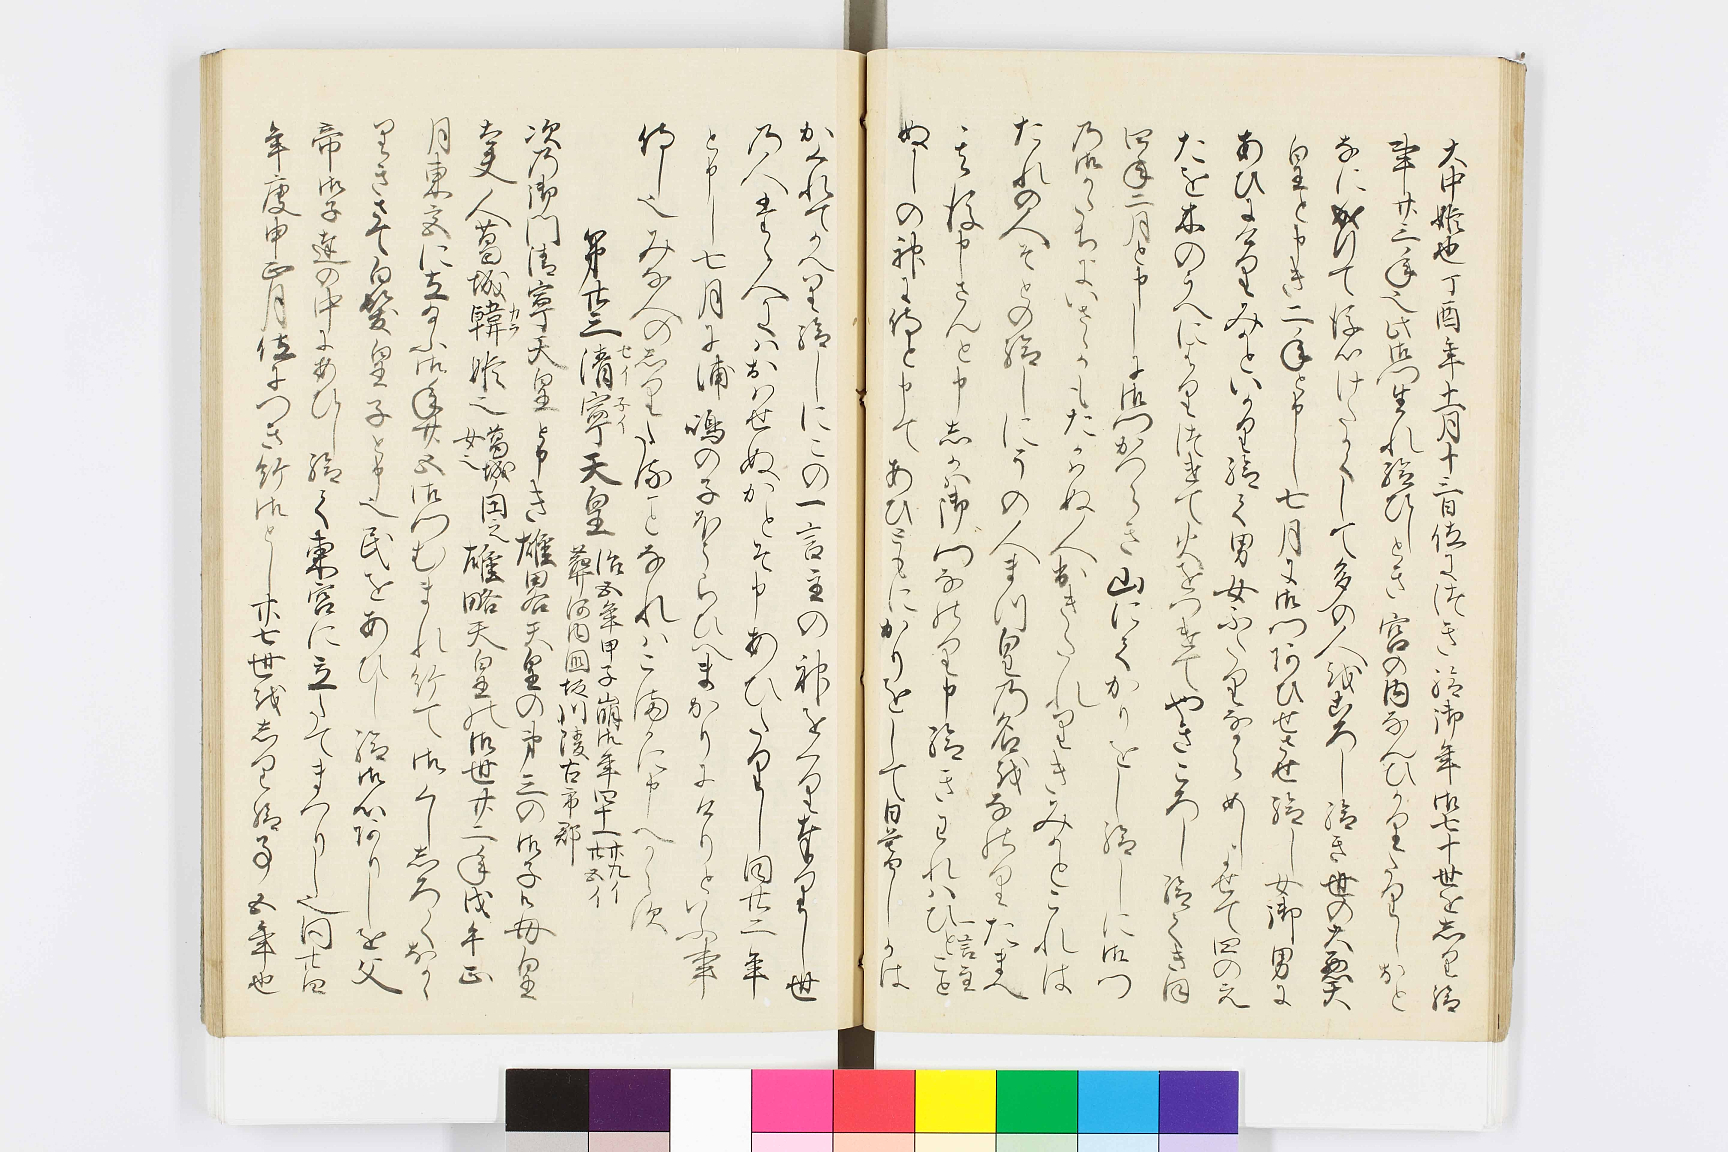 大中姫也丁酉年十一月十三日位につき給御年七十世をしり給
事廿三年也此御門生れ給ひしとき宮の内なんひかりたりしおと
なに成りて後心けたくして多の人をころし給き世の人大悪天
皇と申き二年と申し七月に御門あひせさせ給し女御男に
あひにけりみかといかり給て男女ふたりなからめしよせて四のえ
たを木のうへにはりつけて火をつけてやきころし給てき同
四年二月と申しに御門かつらき山にてかりをし給しに御門
の御かたちにいさゝかもたかはぬ人出きたれりきみかとこれは
たれの人そとの給しにその人まつ皇の名をなのりたまへ
其後申さんと申しかは御門なのり申給きわれはひと言主
ぬしの神に侍と申てあひともにかりをして日暮しかは
かくれてかへり給しにこの一言主の神をくり奉りし世
の人見る人はおはせぬかとそ申あひたりし同廿二年
と申し七月に浦嶋の子ほうらひへまかりにけりといふ事
侍し也みな人のしりたる事なれはこまかに申へからす
第廿三清寧天皇 治五年甲子崩御年四十一 卅九イ 廿五イ
セイ子イ
葬河内国坂門陵古市郡
次の御門清寧天皇と申き雄略天皇の第三の御子御母皇
太夫人葛城韓姫也 葛城円之女也 雄略天皇の御世廿二年戊午正
カラ
月東宮に立給ふ御年廿五御門むまれ給て御くしゝろくなか
りきさて白髪皇子と申也民をあひし給御心ありしを父
帝御子達の中にあひし給て東宮に立たてまつりし也同廿四
年庚申正月位につき給御とし卅七世をしり給事五年也